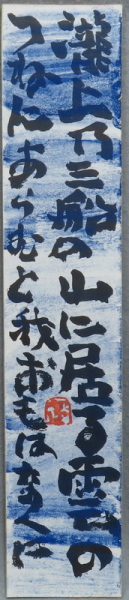 瀧上乃三船の山に居る雲の
つねにあらむと我おもはなくに